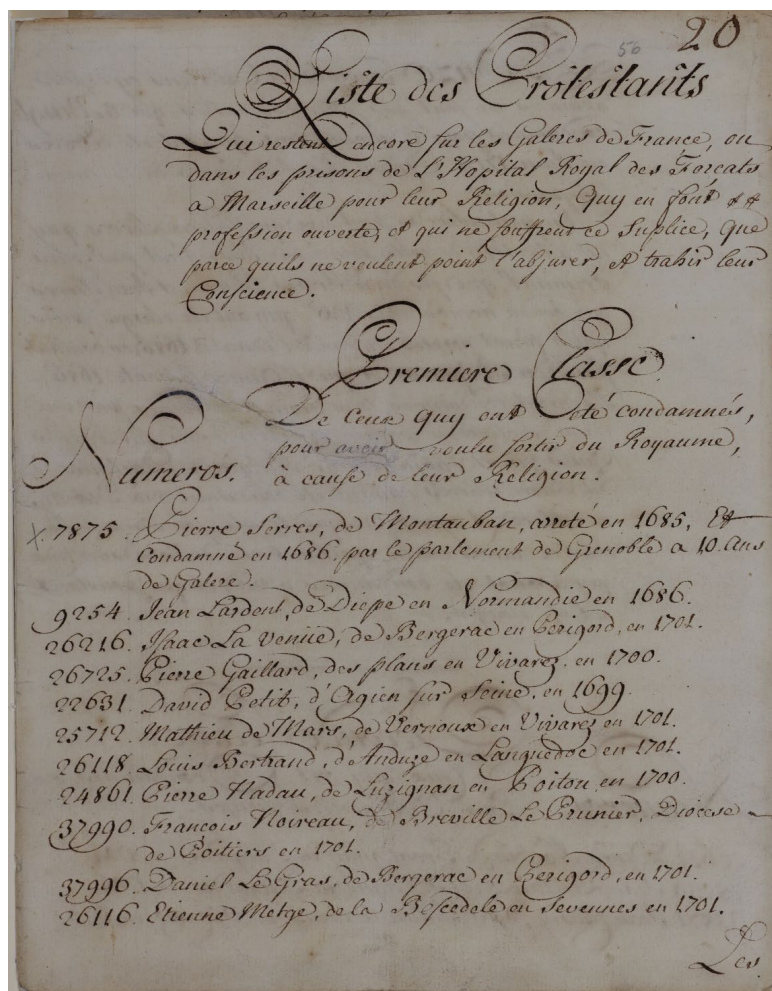 50 20
Liste des Protestants
Qui restent encore sur les Galeres de France, ou
dans les prisons de L'Hopital Royal des Forcats
a Marseille pour leur Religion, Quy en font
profession ouverte, et qui ne souffrent ce Suplice, que
parce quils ne veulent point l'abjurer, et trahir leur
Conscience.
Premiere Classe
De ceux quy ont été condamnés,
pour avoir voulu sortir du Royaume,
Numeros. à cause de leur Religion.
x. 7875. Pierre Serres, de Montauban, areté en 1685, Et
Condamné en 1686 par le parlement de Grenoble a 10 Ans
de Galere.
9254. Jean Lardent, de Diepe en Normandie en 1686.
26216. Isaac La Venüe, de Bergerac en Perigord, en 1701.
26725. Pierre Gaillard, des plans en Vivarez, en 1700.
22631. David Petit, d'Agien sur Seine, en 1699.
25712. Mathieu de Mars, de Vernoux en Vivarez en 1701.
26118. Louis Bertrand, d'Anduze en Languedoc en 1701.
24861. Pierre Nadau, de Luzignan en Poitou, en 1700.
37990. Francois Noireau, de Breville Le Prunier, Diocese
de Poitiers en 1701.
37996. Daniel Le Gras, de Bergerac en Perigord, en 1701.
26116. Etienne Metge, de la en Sevennes en 1701.
Les